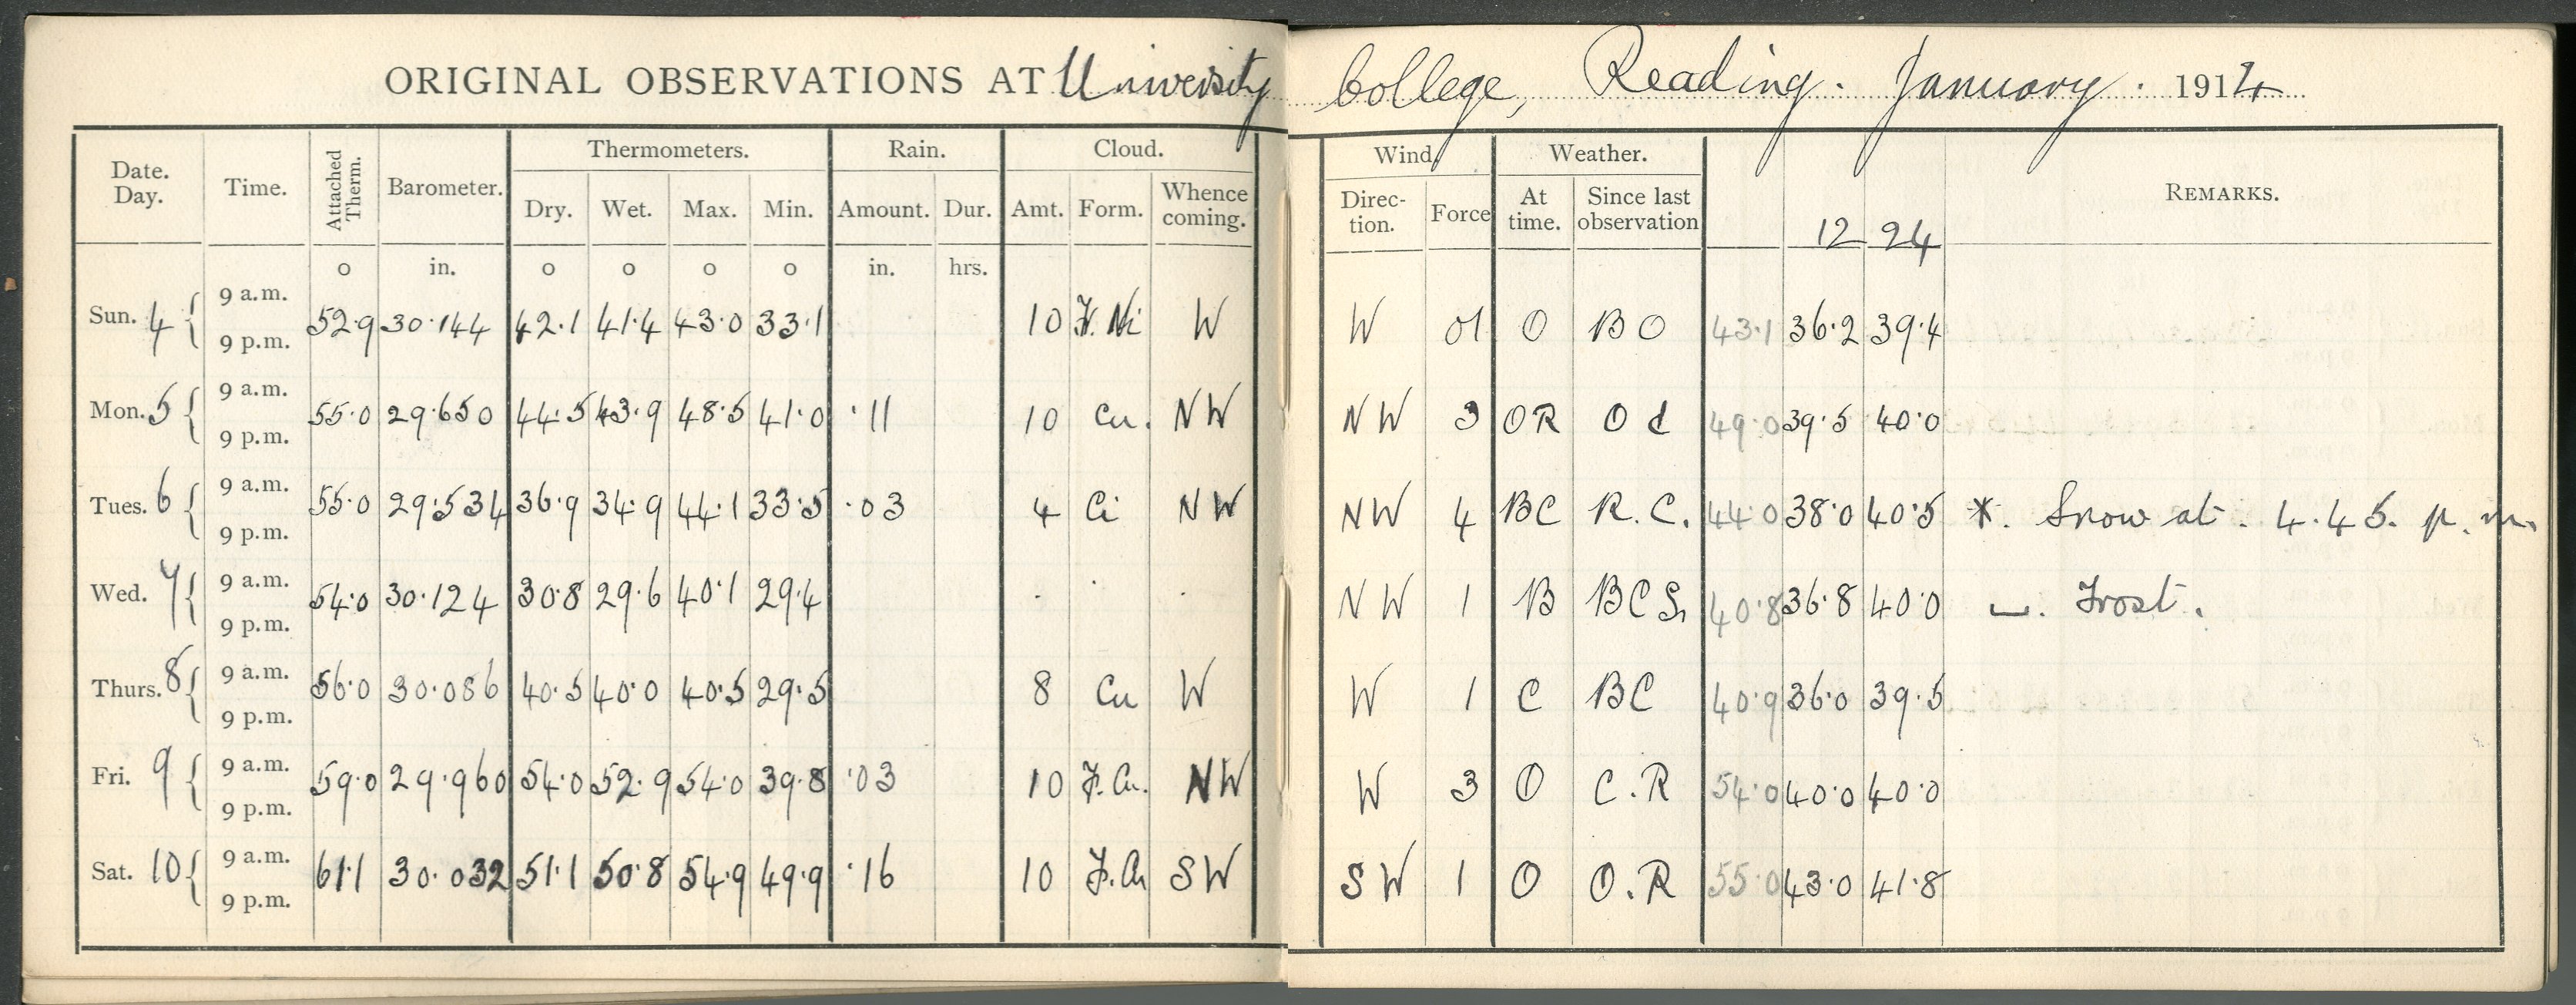 ORIGINAL OBSERVATIONS AT University College, Reading. January. 1914
Date. Day. Time. Attached Therm. Barometer. Thermometers. Dry. Wet. Max. Min. Rain. Amount. Dur. Cloud. Amt. Form. Whence coming. Wind. Direc- tion. Force Weather. At time. Since last observation 12 24 REMARKS.
o in. o o o o in. hrs.
Sun. 4 { 9 a.m. 9 p.m. 52.9 30.144 42.1 41.4 43.0 33.1 10 Fr. Ni W W 01 O B O 43.1 36.2 39.4
Mon. 5 { 9 a.m. 9 p.m. 55.0 29.650 44.5 43.9 48.5 41.0 .11 10 Cu. NW NW 3 OR O d 49.0 39.5 40.0
Tues. 6 { 9 a.m. 9 p.m. 55.0 29.534 36.9 34.9 44.1 33.5 .03 4 Ci NW NW 4 BC R.C. 44.0 38.0 40.5 *. Snow at. 4.45. p.m.
Wed. 7 { 9 a.m. 9 p.m. 54.0 30.124 30.8 29.6 40.1 29.4 . . NW 1 B BC S. 40.8 36.8 40.0 ⎵. Frost.
Thurs. 8 { 9 a.m. 9 p.m. 56.0 30.086 40.5 40.0 40.5 29.5 8 Cu W W 1 C BC 40.9 36.0 39.5
Fri. 9 { 9 a.m. 9 p.m. 59.0 29.960 54.0 52.9 54.0 39.8 .03 10 F.Cu. NW W 3 O C.R 54.0 40.0 40.0
Sat. 10 { 9 a.m. 9 p.m. 61.1 30.032 51.1 50.8 54.9 49.9 .16 10 F.Cu SW SW 1 O O.R 55.0 43.0 41.8